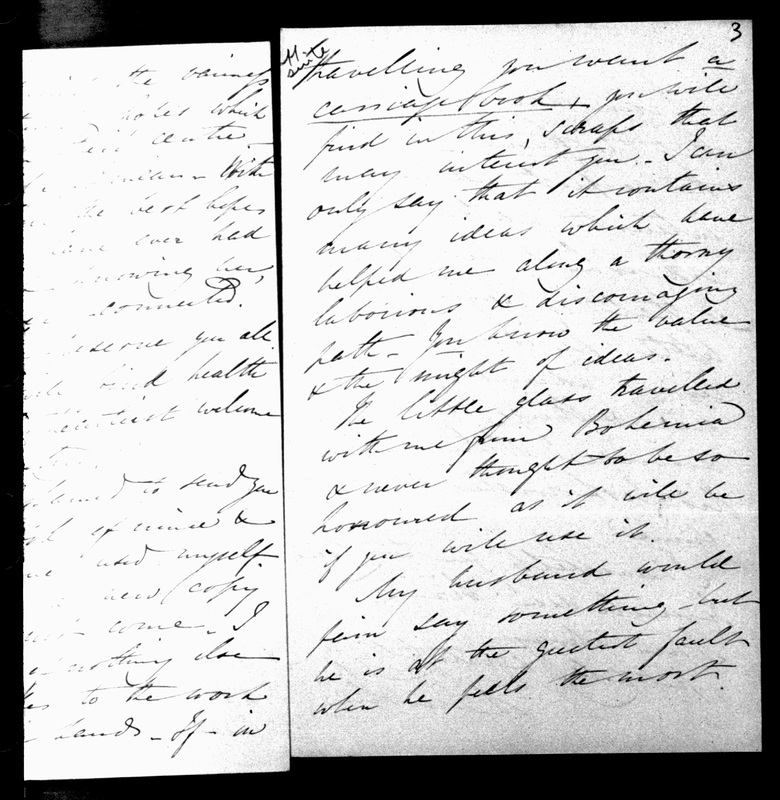 the
holes which
centre
With
the best hopes
have ever had
knowing her,
connected.
deserve you all
health
welcome
to send you
of mine &
used myself
new copy
come - I
nothing else
to the work
hands - If - in
3
travelling you want a
carriage book & you will
find in this, scraps that
may interest you - I can
only say that it contains
many ideas which have
helped me along a thorny
laborious & discouraging
path - You know the value
& the might of ideas.
The little glass travelled
with me from Bohemia
& never thought to be so
honoured as it will be
if you will use it.
My husband would
fain say something but
he is at the greatest fault
when he feels the most.